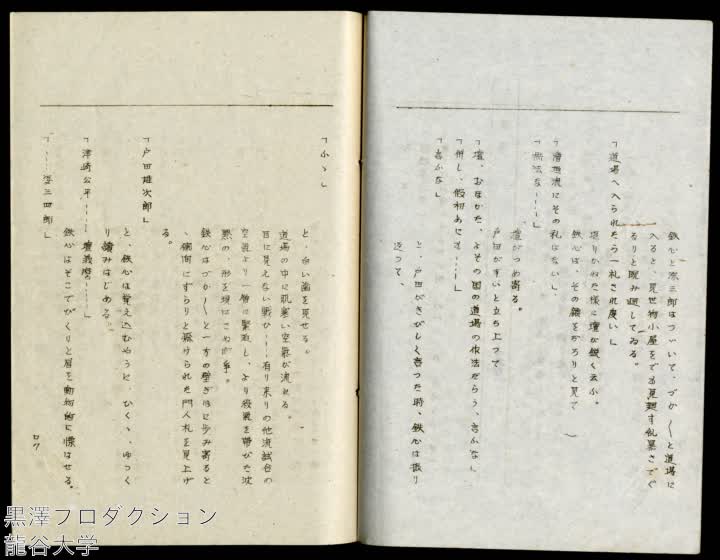 鉄心と源三郎はつゞいて、づか〳〵と道場に
入ると、見世物小屋をでも見廻す乱暴さでぐ
るりと睨み廻してゐる。
「道場へ入られたら一礼され度い」
堪りかねた様に壇が鋭く云ふ。
鉄心は、その顔をぢろりと見て
「流にその礼はない」
「無法な……」
壇がつめ寄る。
戸田がすいと立ち上って
「壇、おほかた、よその国の道場の作法だらう、さふな」
「併し、仮初めにも……」
「さふな」
と、戸田がきびしく言った時、鉄心は振り
返って、
「ふゝ」
と、白い歯を見せる。
道場の中に肌寒い空気が流れる。
目に見えない戦ひ……有り来りの他流試合の
空気より一層に緊迫し、より殺気を帯びた沈
黙の、形を現はさぬ争。
鉄心はづか〳〵と一方の壁ぎはに歩み寄ると
、横向にずらりと掛けられた門人札を見上げ
る。
「戸田雄次郎」
と、鉄心は覚え込むやうに、ひくゝ、ゆっく
り読みはじめる。
「津崎公平……壇義麿……」
鉄心はそこでぴくりと眉を動物的に慄はせる。
「……源三四郎」
ロク
黒澤プロダクション
龍谷大学